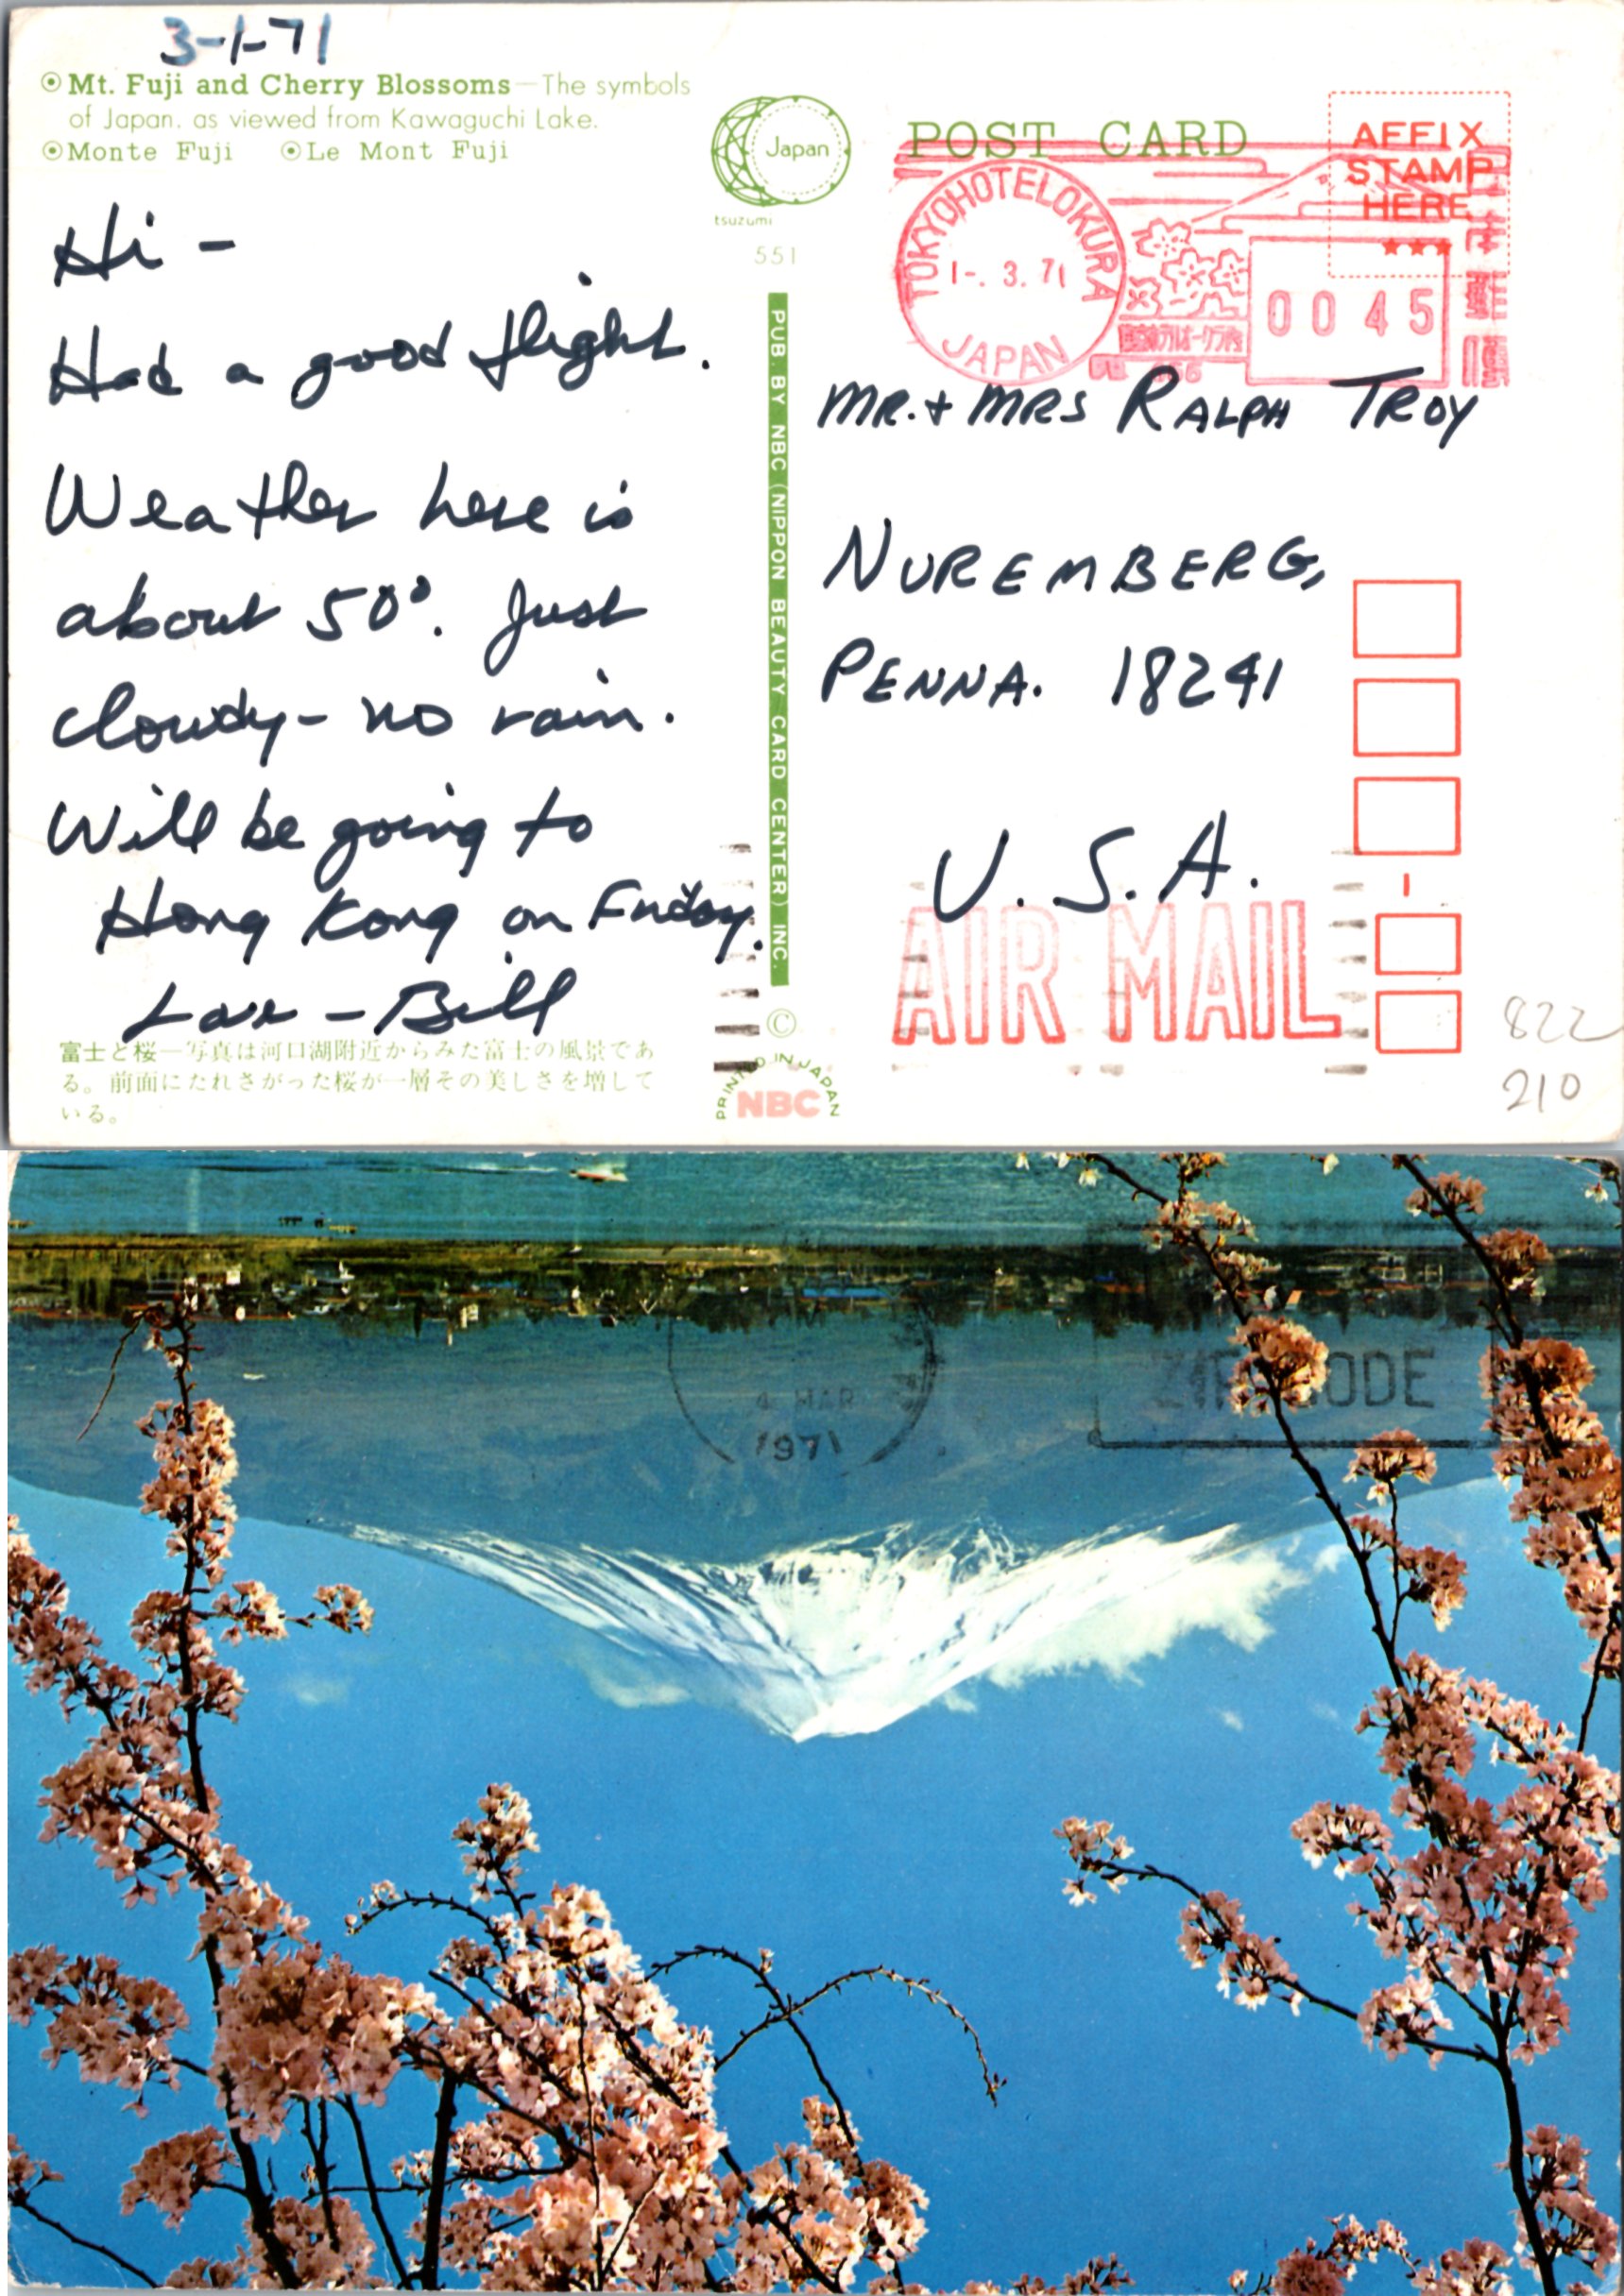 3-1-71
Mt. Fuji and Cherry Blossoms—The symbols
of Japan. as viewed from Kawaguchi Lake.
Monte Fuji Le Mont Fuji
Hi -
Had a good flight.
Weather here is
about 50°. Just
cloudy - no rain.
Will be going to
Hong Kong on Friday.
Love - Bill
富士と桜—写真は河口湖附近からみた富士の風景であ
る。前面にたれさがった桜が一層その美しさを増して
いる。
Japan
tsuzumi
551
PUB. BY NBC (NIPPON BEAUTY CARD CENTER) INC.
©
PRINTED IN JAPAN
NBC
POST CARD
AFFIX
STAMP
HERE
TOKYOHOTELOKURA
1-.3.71
JAPAN
0045
MR. + MRS RALPH TROY
NUREMBERG,
PENNA. 18241
U.S.A.
AIR MAIL
822
210
4 MAR
1971
ZIP CODE